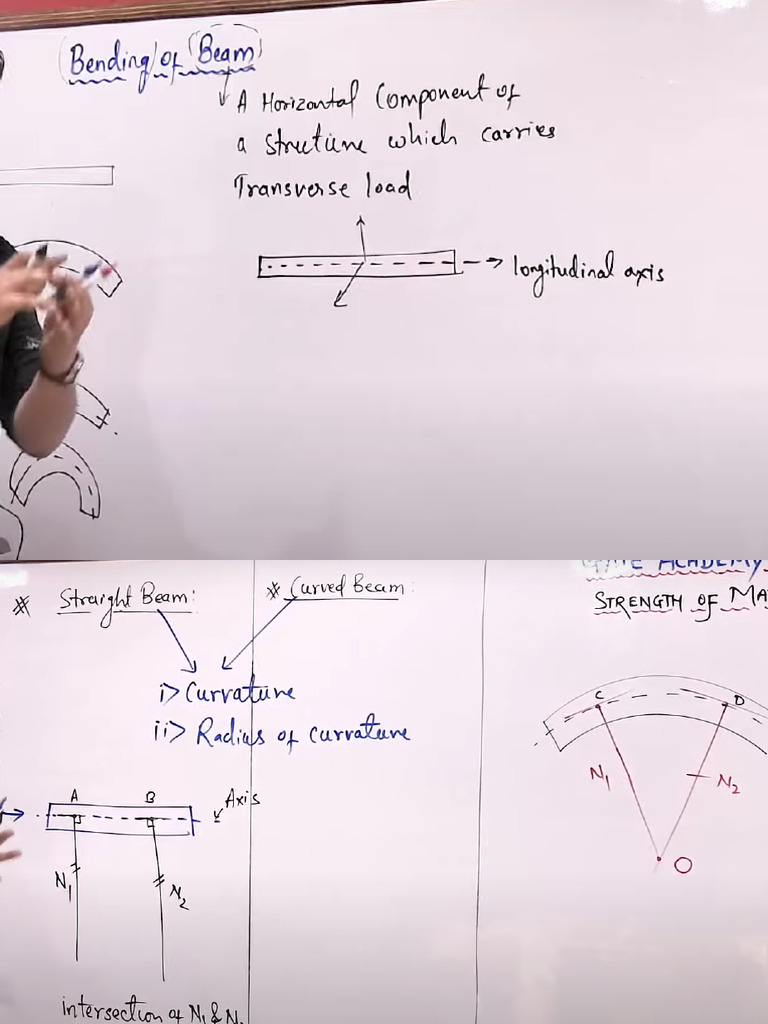 Bending of Beam
A Horizontal Component of
a structure which carries
Transverse load
longitudinal axis
* Straight Beam:
* Curved Beam:
i> Curvature
ii> Radius of curvature
A
B
Axis
N1
N2
intersection of N1 &
ACADEMY
STRENGTH OF
C
D
N1
N2
O